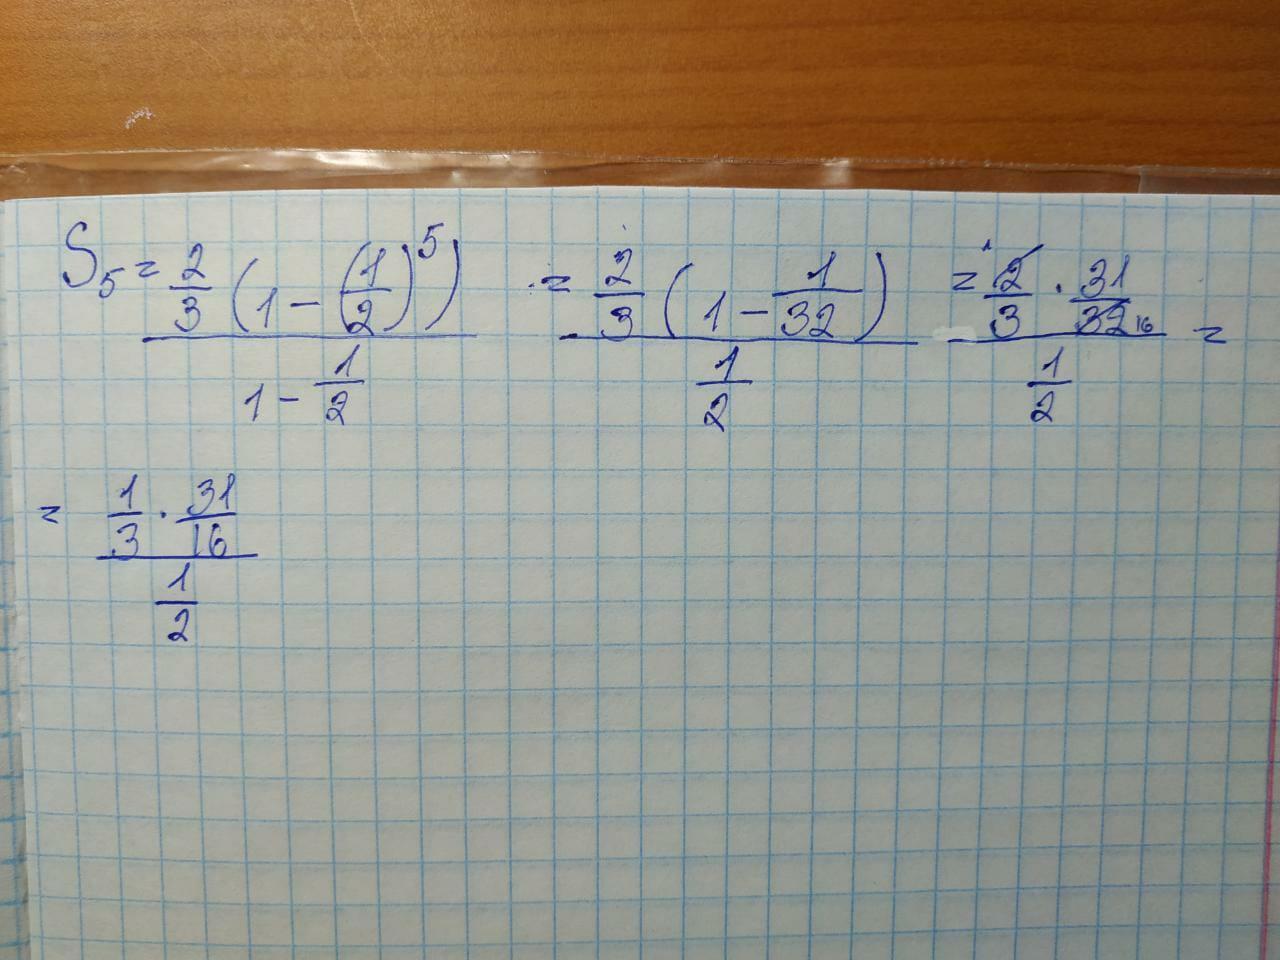 S₅ = (2/3 (1 - (1/2)⁵)) / (1 - 1/2) = (2/3 (1 - 1/32)) / (1/2) = (2̸ ¹/3 · 31/3̸2̸ 16) / (1/2) =
= (1/3 · 31/16) / (1/2)